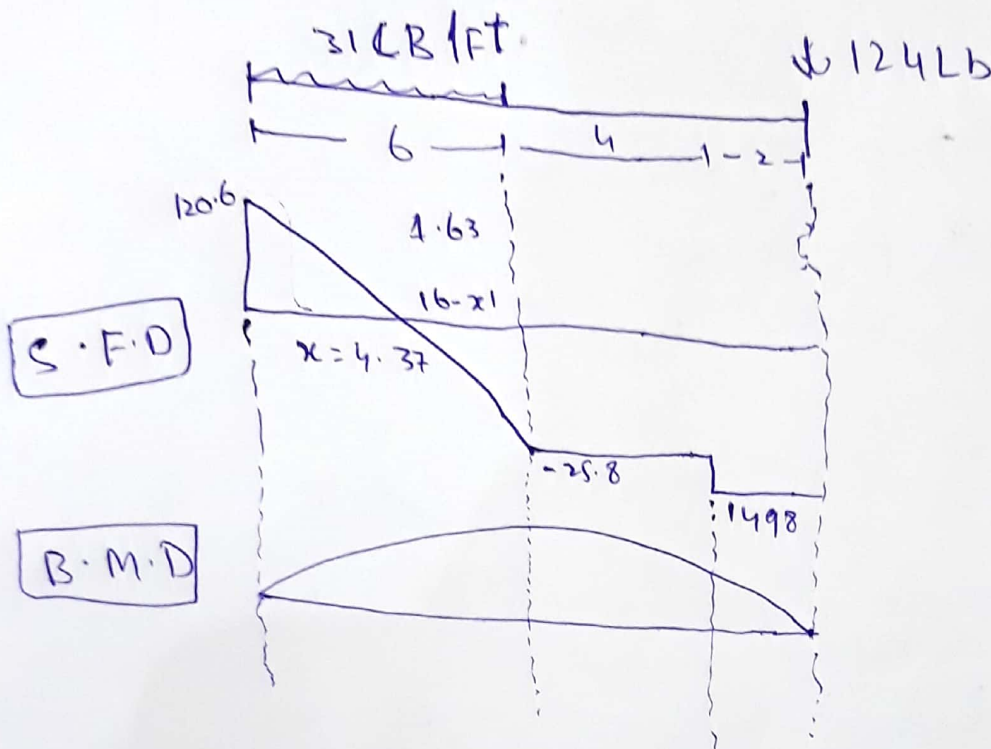 31LB/FT.
↓ 124Lb
6
4
2
120.6
1.63
16-x1
S.F.D
x=4.37
-25.8
1498
B.M.D